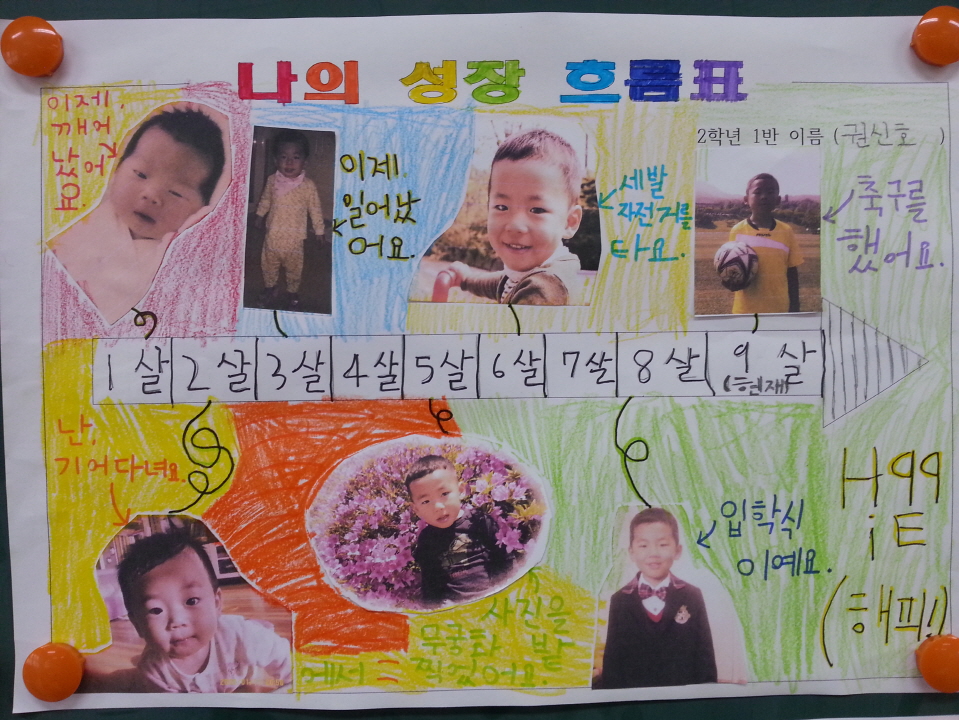 나의 성장 흐름표
2학년 1반 이름 (권신호 )
이제,
깨어
났어
요.
이제
일어났
어요.
세발
자전거를
타요.
축구를
했어요.
1살 2살 3살 4살 5살 6살 7살 8살 9살
(현재)
난,
기어다녀요.
사진을
무궁화 밭
에서 찍었어요.
입학식
이예요.
H99
iE
(해피!)